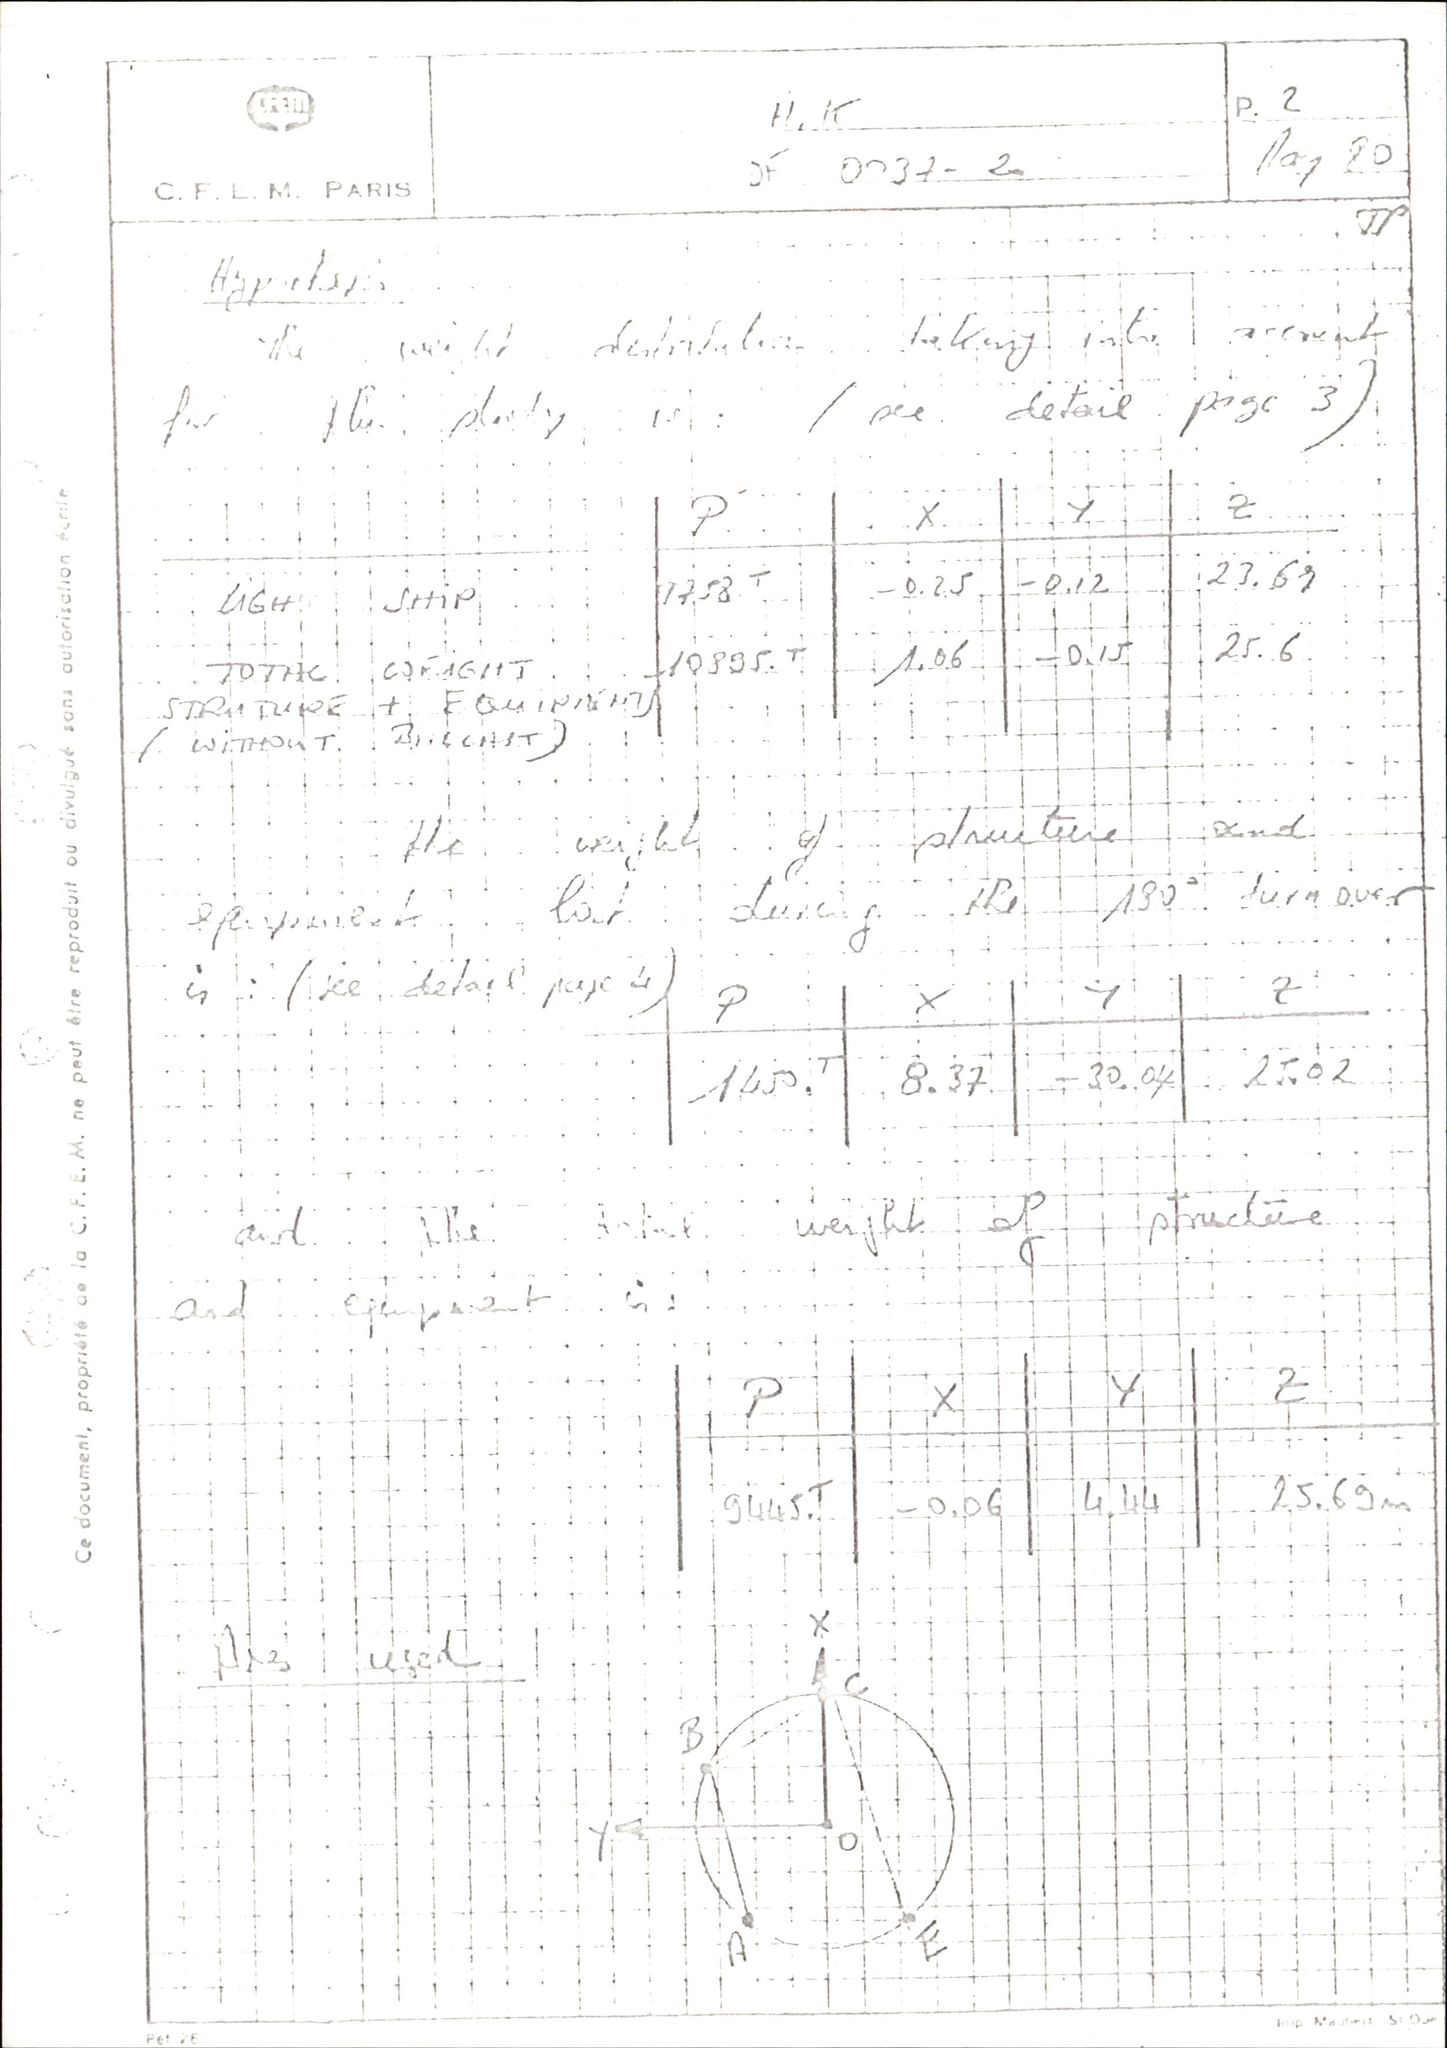 CFEM
C. F. E. M. PARIS
H.K
OF 0037-2
P. 2
May 80
Hypothesis
The weight distribution taking into account
for this study is : (see detail page 3)
P X Y Z
LIGH SHIP 7758 T -0.25 -0.12 23.69
TOTAL WEIGHT 10895.T 1.06 -0.15 25.6
STRUTURE + EQUIPMENTS
(WITHOUT BALLAST)
the weight of structure and
equipment lost during the 180° turn over
is : (see detail page 4)
P X Y Z
1450.T 8.37 -30.04 25.02
and the total weight of structure
and equipment is :
P X Y Z
9445.T -0.06 4.44 25.69m
Axes used
X
C
B
Y
O
A
E
Ce document, propriété de la C.F.E.M. ne peut être reproduit ou divulgué sans autorisation écrite